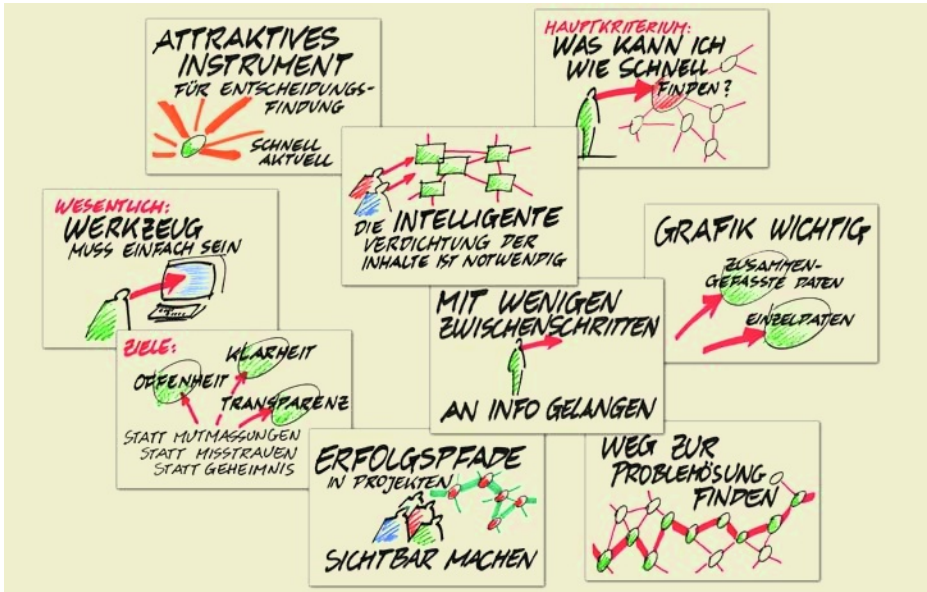 ATTRAKTIVES
INSTRUMENT
FÜR ENTSCHEIDUNGS-
FINDUNG
SCHNELL
AKTUELL
HAUPTKRITERIUM:
WAS KANN ICH
WIE SCHNELL
FINDEN?
DIE INTELLIGENTE
VERDICHTUNG DER
INHALTE IST NOTWENDIG
WESENTLICH:
WERKZEUG
MUSS EINFACH SEIN
GRAFIK WICHTIG
ZUSAMMEN-
GEFASSTE DATEN
EINZELDATEN
MIT WENIGEN
ZWISCHENSCHRITTEN
AN INFO GELANGEN
ZIELE:
KLARHEIT
OFFENHEIT
TRANSPARENZ
STATT MUTMASSUNGEN
STATT MISSTRAUEN
STATT GEHEIMNIS
ERFOLGSPFADE
IN PROJEKTEN
SICHTBAR MACHEN
WEG ZUR
PROBLEMÖSUNG
FINDEN